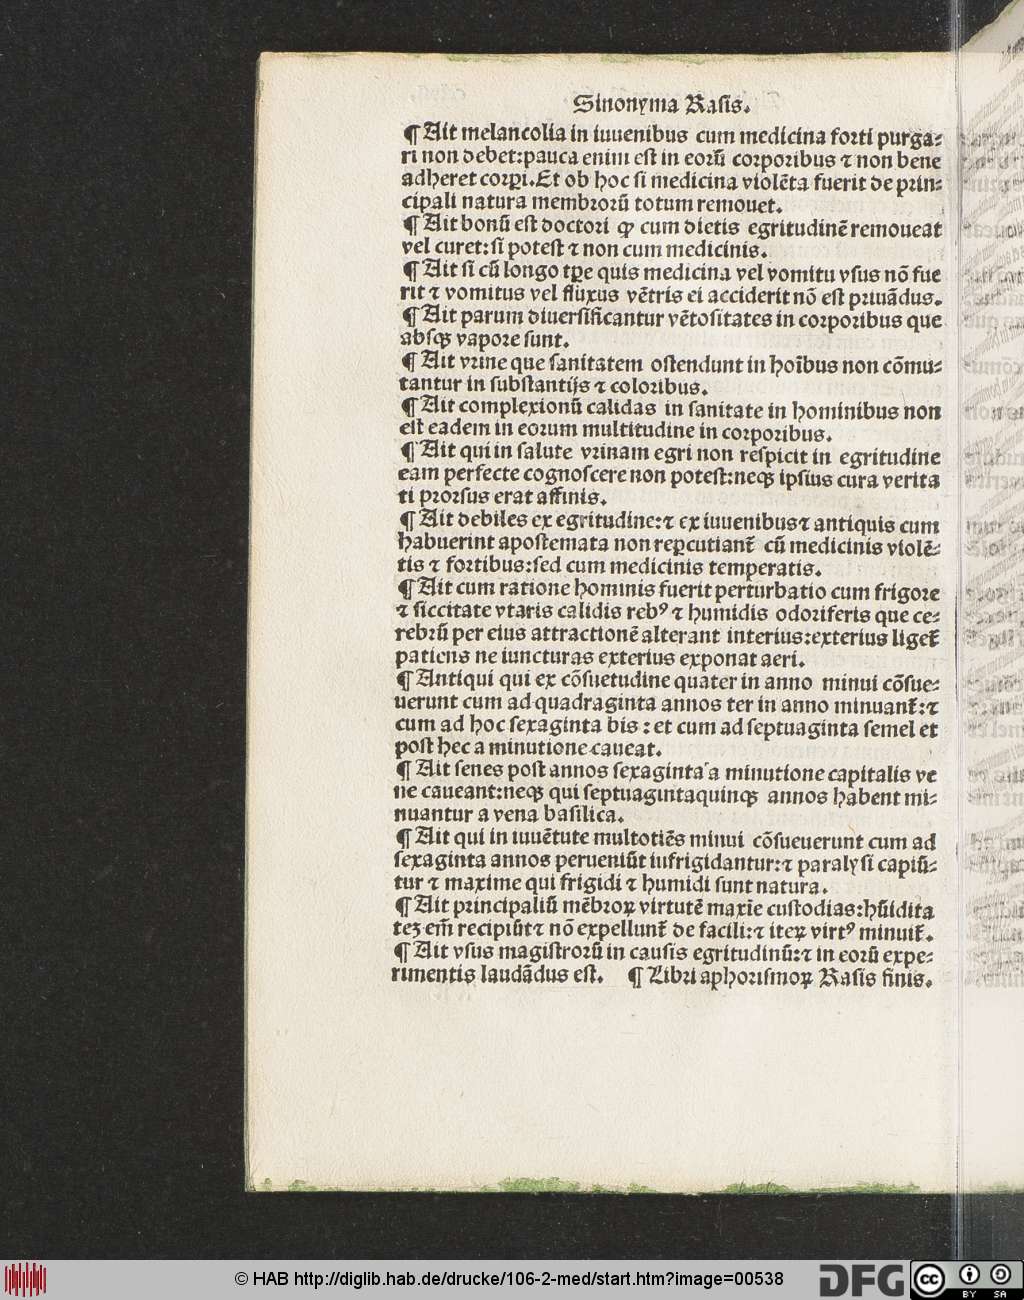 Sinonyma Rasis.
¶ Ait melancolia in iuuenibus cum medicina forti purga⸗
ri non debet:pauca enim est in eorū corporibus ⁊ non bene
adheret corꝑi.Et ob hoc si medicina violēta fuerit de prin⸗
cipali natura membrorū totum remouet.
¶ Ait bonū est doctori ꝙ cum dietis egritudinē remoueat
vel curet:si potest ⁊ non cum medicinis.
¶ Ait si cū longo tꝑe quis medicina vel vomitu vsus nō fue
rit ⁊ vomitus vel fluxus vētris ei acciderit nō est priuādus.
¶ Ait parum diuersificantur vētositates in corporibus que
absqꝫ vapore sunt.
¶ Ait vrine que sanitatem ostendunt in hoībus non cōmu⸗
tantur in substantijs ⁊ coloribus.
¶ Ait complexionū calidas in sanitate in hominibus non
est eadem in eorum multitudine in corporibus.
¶ Ait qui in salute vrinam egri non respicit in egritudine
eam perfecte cognoscere non potest:neqꝫ ipsius cura verita
ti prorsus erat affinis.
¶ Ait debiles ex egritudine:⁊ ex iuuenibus⁊ antiquis cum
habuerint apostemata non reꝑcutiant̄ cū medicinis violē⸗
tis ⁊ fortibus:sed cum medicinis temperatis.
¶ Ait cum ratione hominis fuerit perturbatio cum frigore
⁊ siccitate vtaris calidis rebꝰ ⁊ humidis odoriferis que ce⸗
rebrū per eius attractionē alterant interius:exterius liget̄
patiens ne iuncturas exterius exponat aeri.
¶ Antiqui qui ex cōsuetudine quater in anno minui cōsue⸗
uerunt cum ad quadraginta annos ter in anno minuant̄:⁊
cum ad hoc sexaginta bis : et cum ad septuaginta semel et
post hec a minutione caueat.
¶ Ait senes post annos sexaginta a minutione capitalis ve
ne caueant:neqꝫ qui septuagintaquinqꝫ annos habent mi⸗
nuantur a vena basilica.
¶ Ait qui in iuuētute multotiēs minui cōsueuerunt cum ad
sexaginta annos perueniūt iufrigidantur:⁊ paralysi capiū⸗
tur ⁊ maxime qui frigidi ⁊ humidi sunt natura.
¶ Ait principaliū mēbroꝝ virtutē maxīe custodias:hūidita
tez em̄ recipiūt⁊ nō expellunt̄ de facili:⁊ iteꝝ virtꝰ minuit̄.
¶ Ait vsus magistrorū in causis egritudinū:⁊ in eorū expe⸗
rimentis laudādus est. ¶ Libri aphorismoꝝ Rasis finis.
© HAB http://diglib.hab.de/drucke/106-2-med/start.htm?image=00538
DFG
cc BY SA